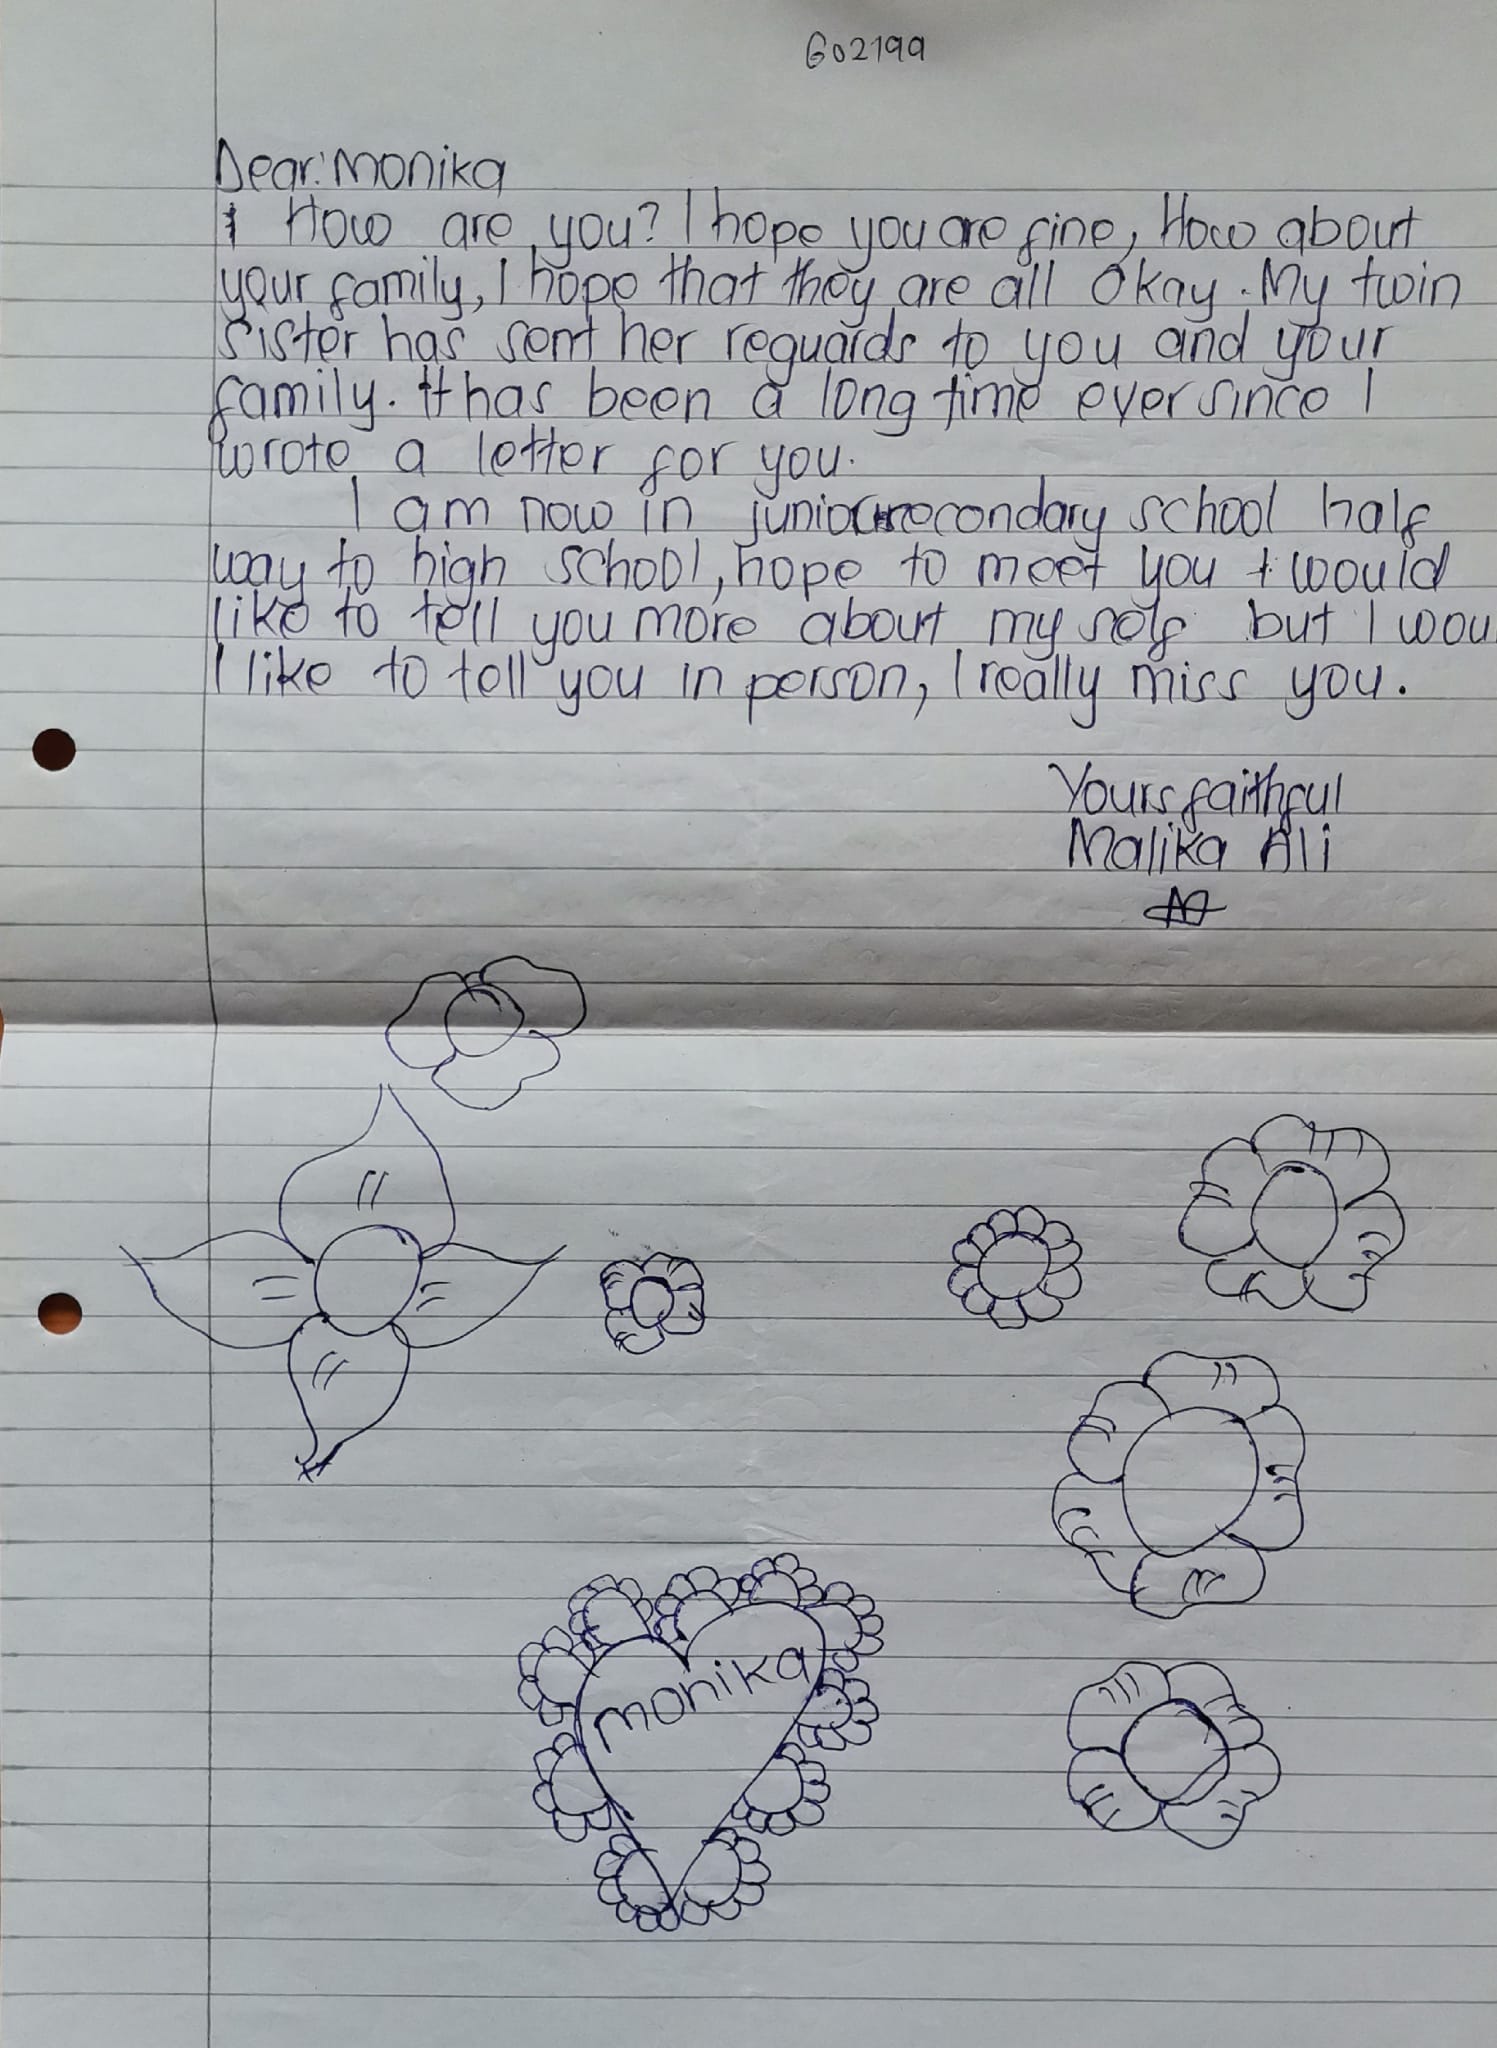 G02199
Dear: Monika
How are you? I hope you are fine, How about
your family, I hope that they are all okay. My twin
sister has sent her reguards to you and your
family. It has been a long time ever since I
wrote a letter for you.
I am now in junior secondary school half
way to high school, hope to meet you I would
like to tell you more about my self but I wou
l like to tell you in person, I really miss you.
Yours faithful
Malika Ali
monika